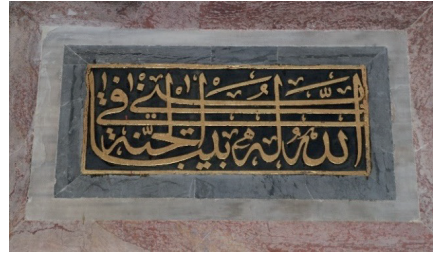 بنى الله له بيتا في الجنة